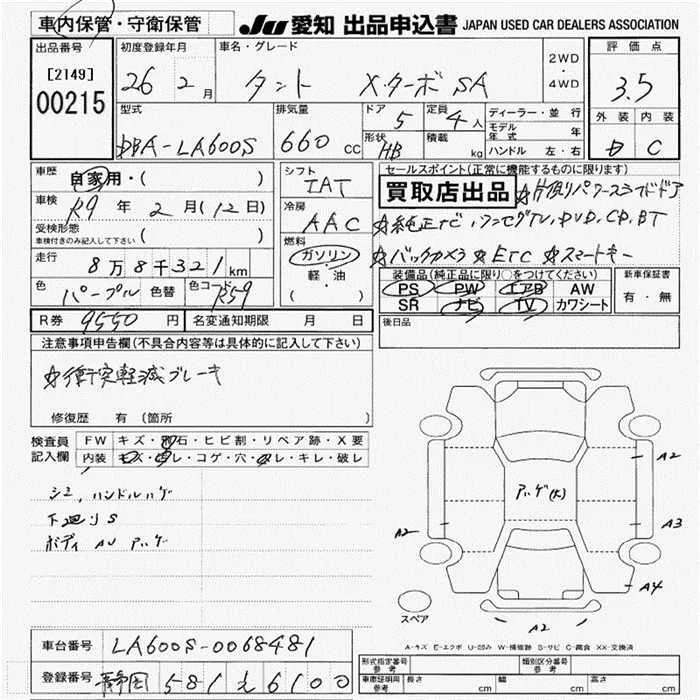 車内保管・守衛保管 JU 愛知 出品申込書 JAPAN USED CAR DEALERS ASSOCIATION
出品番号 初度登録年月 車名・グレード 評価点
[2149] 26 2 月 タント X.ターボ SA 2WD・4WD 3.5
00215
型式 排気量 ドア 5 定員 4 人 ディーラー・並行 外装 内装
DBA-LA600S 660 cc 形状 HB 積載 kg モデル年式 年 C
ハンドル 左・右
車歴 自家用・( ) シフト IAT セールスポイント(正常に機能するものに限ります)
買取店出品 ☆片側パワースライドドア
車検 R9 年 2 月 (12 日) 冷房 AAC ☆純正ナビ、ワンセグTV, DVD, CD, BT
受検形態 ( )
車検付きのみ記入して下さい
燃料 ガソリン・軽・油 ( ) ☆バックカメラ ☆ETC ☆スマートキー
走行 8 万 8 千 321 km
装備品(純正品に限り○をつけてください) 新車保証書
色 パープル 色替 色コードNo. R59 PS PW エアB AW 有・無
SR ナビ TV カワシート
R券 9550 円 名変通知期限 月 日 後日品
注意事項申告欄(不具合内容等は具体的に記入して下さい)
☆衝突軽減ブレーキ
修復歴 有 (箇所 )
検査員記入欄 FW キズ・飛石・ヒビ割・リペア跡・X要
内装 キズ・汚レ・コゲ・穴・スレ・キレ・破レ
シミ、ハンドルハゲ
下廻りS
ボディ AU アゲ
アゲ(大)
A2
A2
A3
A4
A2
スペア
車台番号 LA600S-0068481
A-キズ E-エクボ U-凹み W-補修跡 S-サビ C-腐食 XX-交換済
登録番号 静岡 581 え 6100
形式指定番号 参考 類別区分番号 参考
車庫証明用 参考 長さ cm 幅 cm 高さ cm